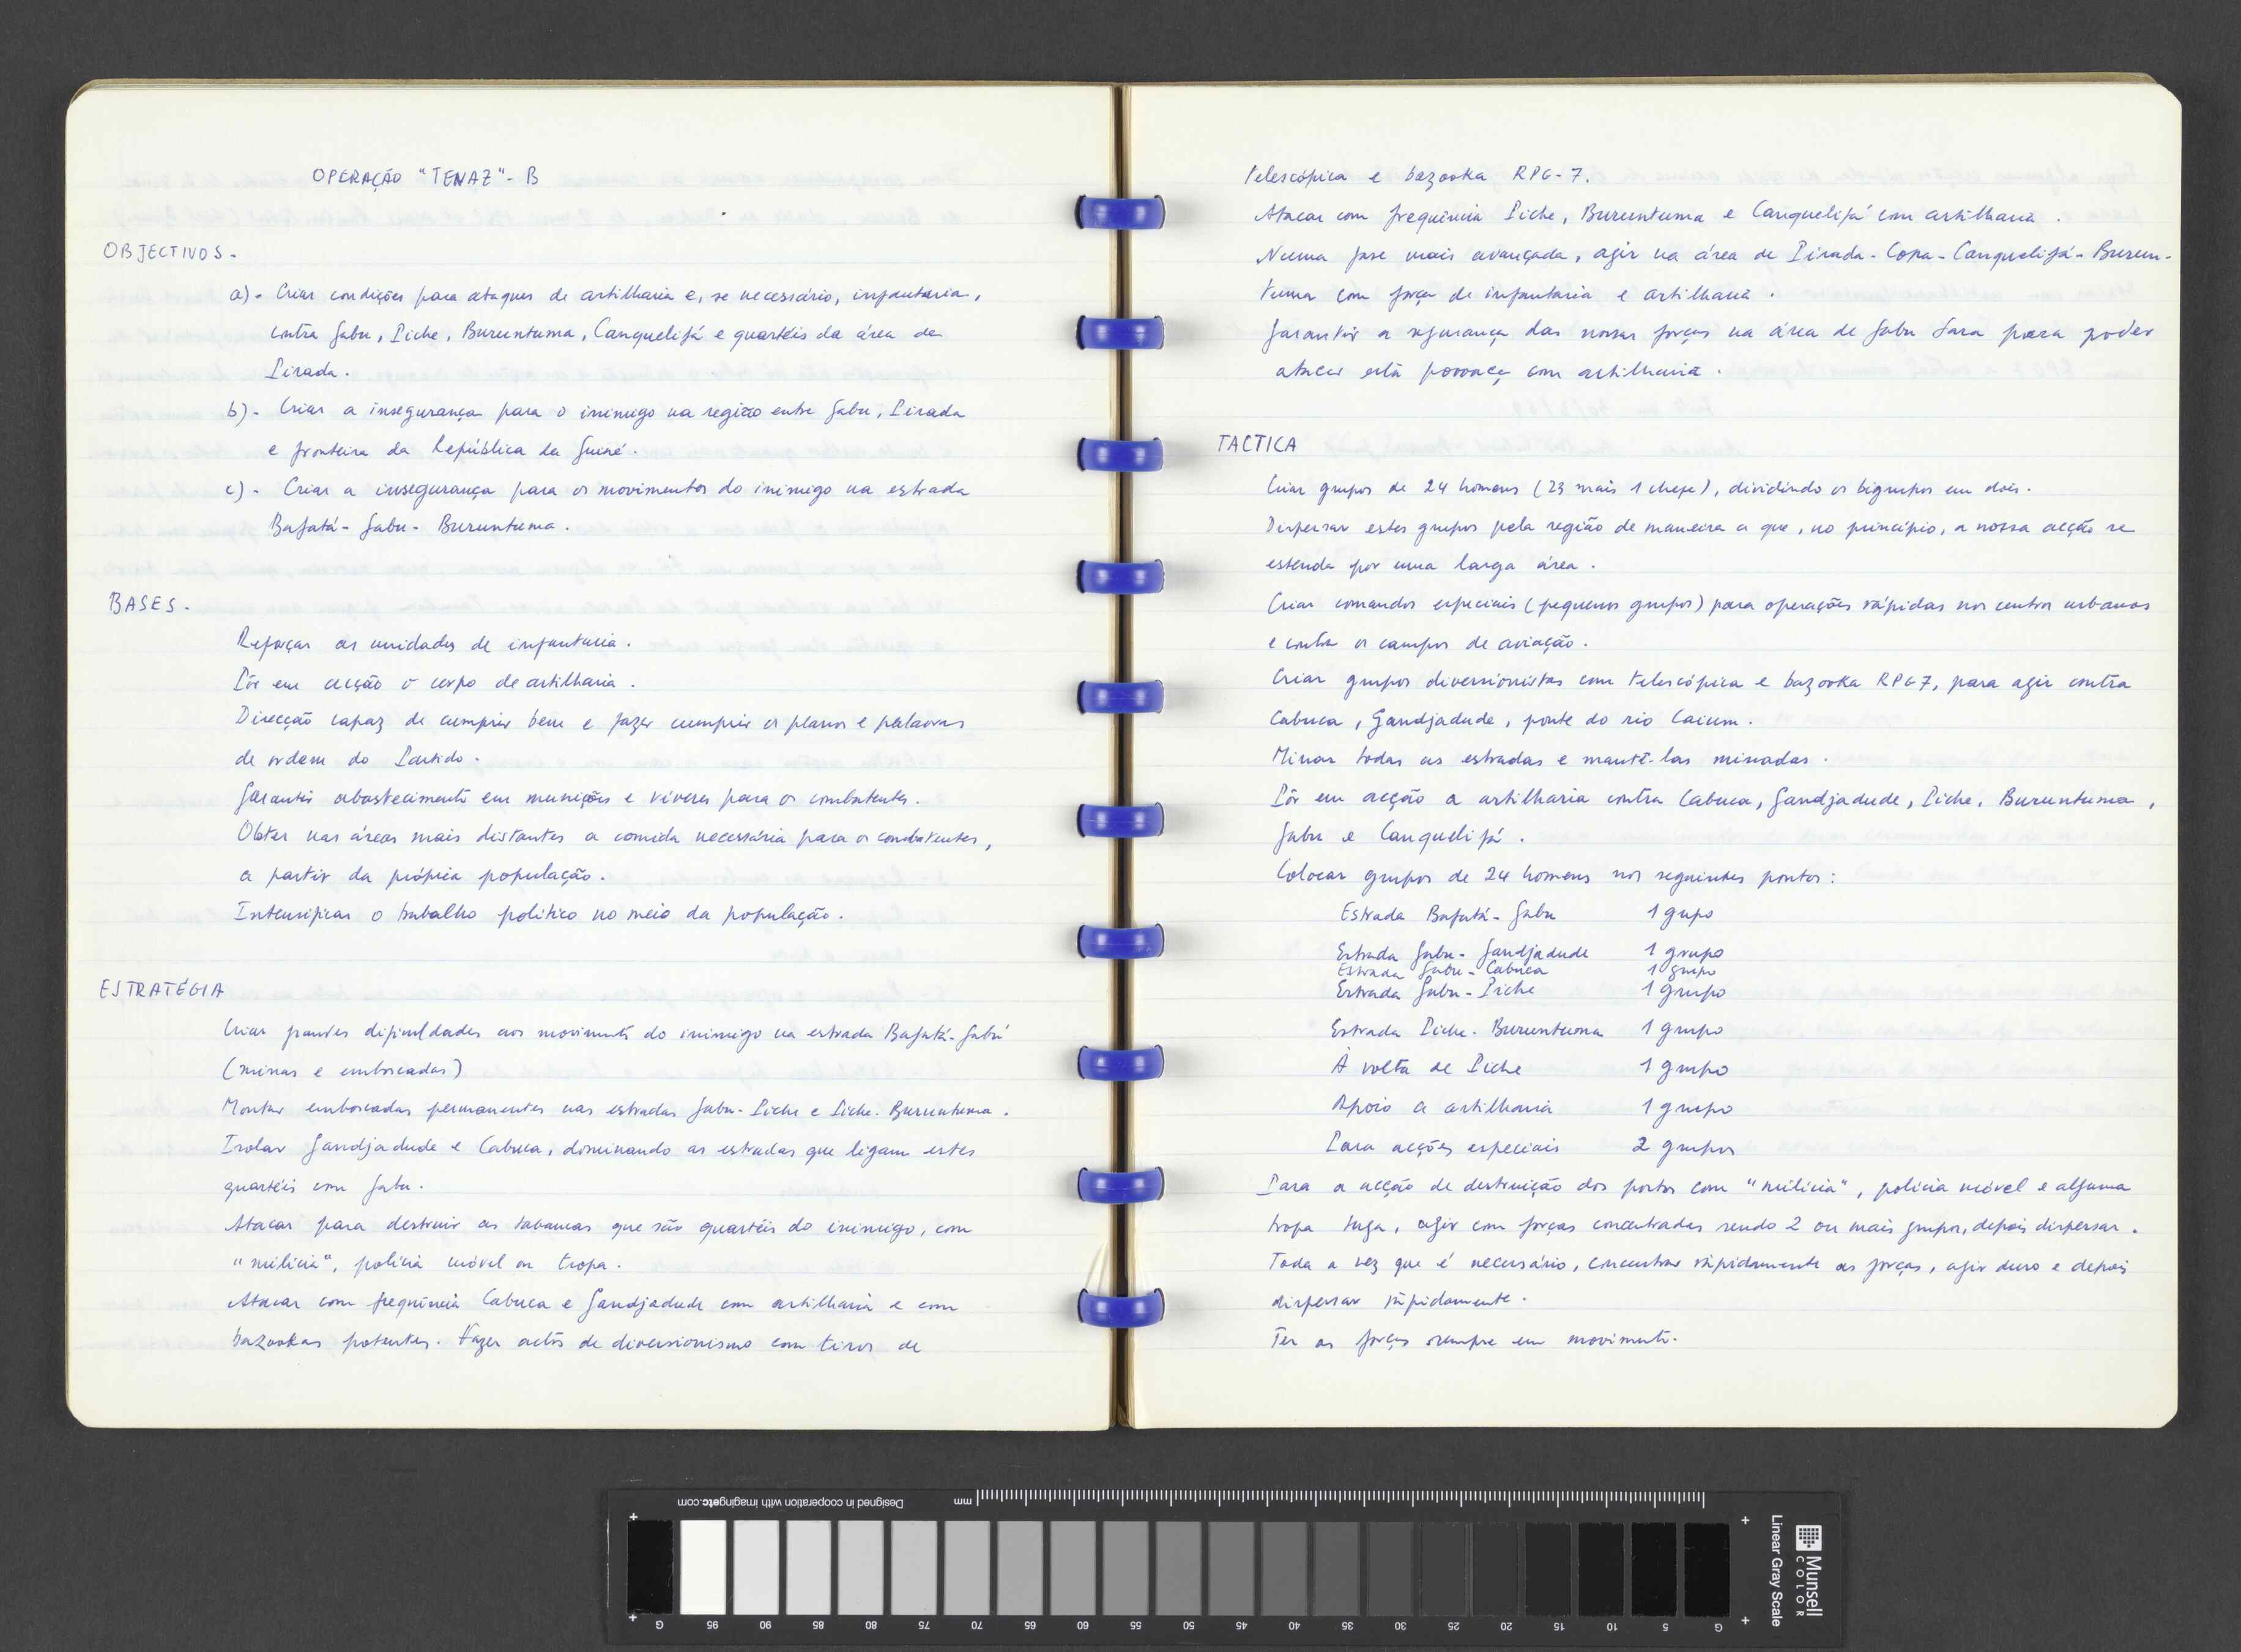 OPERAÇÃO "TENAZ"- B
OBJECTIVOS -
a)- Criar condições para ataques de artilharia e, se necessário, infantaria,
contra Gabu, Piche, Buruntuma, Canquelifá e quartéis da área de
Pirada.
b)- Criar a insegurança para o inimigo na região entre Gabu, Pirada
e fronteira da República da Guiné.
c)- Criar a insegurança para os movimentos do inimigo na estrada
Bafatá- Gabu- Buruntuma.
BASES -
Reforçar as unidades de infantaria.
Pôr em acção o corpo de artilharia.
Direcção capaz de cumprir bem e fazer cumprir os planos e palavras
de ordem do Partido.
Garantir abastecimento em munições e víveres para os combatentes.
Obter nas áreas mais distantes a comida necessária para os combatentes,
a partir da própria população.
Intensificar o trabalho político no meio da população.
ESTRATÉGIA
Criar grandes dificuldades aos movimentos do inimigo na estrada Bafatá-Gabú
(minas e emboscadas)
Montar emboscadas permanentes nas estradas Gabu-Piche e Piche-Buruntuma.
Isolar Gandjadude e Cabuca, dominando as estradas que ligam estes
quartéis com Gabu.
Atacar para destruir as tabancas que são quartéis do inimigo, com
"milícia", polícia móvel ou tropa.
Atacar com frequência Cabuca e Gandjadude com artilharia e com
bazookas potentes. Fazer actos de diversionismo com tiros de
telescópica e bazooka RPG-7.
Atacar com frequência Piche, Buruntuma e Canquelifá com artilharia.
Numa fase mais avançada, agir na área de Pirada-Copa-Canquelifá-Burun-
tuma com força de infantaria e artilharia.
Garantir a segurança das nossas forças na área de Gabu Sara para poder
atacar esta povoaç com artilharia.
TACTICA
Criar grupos de 24 homens (23 mais 1 chefe), dividindo os bigrupos em dois.
Dispersar estes grupos pela região de maneira a que, no princípio, a nossa acção se
estenda por uma larga área.
Criar comandos especiais (pequenos grupos) para operações rápidas nos centros urbanos
e contra os campos de aviação.
Criar grupos diversionistas com telescópica e bazooka RPG7, para agir contra
Cabuca, Gandjadude, ponte do rio Caium.
Minar todas as estradas e mantê-las minadas.
Pôr em acção a artilharia contra Cabuca, Gandjadude, Piche, Buruntuma,
Gabu e Canquelifá.
Colocar grupos de 24 homens nos seguintes pontos:
Estrada Bafatá-Gabu 1 gupo
Estrada Gabu-Gandjadude 1 grupo
Estrada Gabu-Cabuca 1 grupo
Estrada Gabu-Piche 1 grupo
Estrada Piche-Buruntuma 1 grupo
À volta de Piche 1 grupo
Apoio a artilharia 1 grupo
Para acções especiais 2 grupos
Para a acção de destruição dos postos com "milícia", polícia móvel e alguma
tropa tuga, agir com forças concentradas sendo 2 ou mais grupos, depois dispersar.
Toda a vez que é necessário, concentrar rápidamente as forças, agir duro e depois
dispersar rápidamente.
Ter as forças sempre em movimento.
Designed in cooperation with imagingetc.com
mm
95 90 85 80 75 70 65 60 55 50 45 40 35 30 25 20 15 10 5 G
Munsell
COLOR
Linear Gray Scale